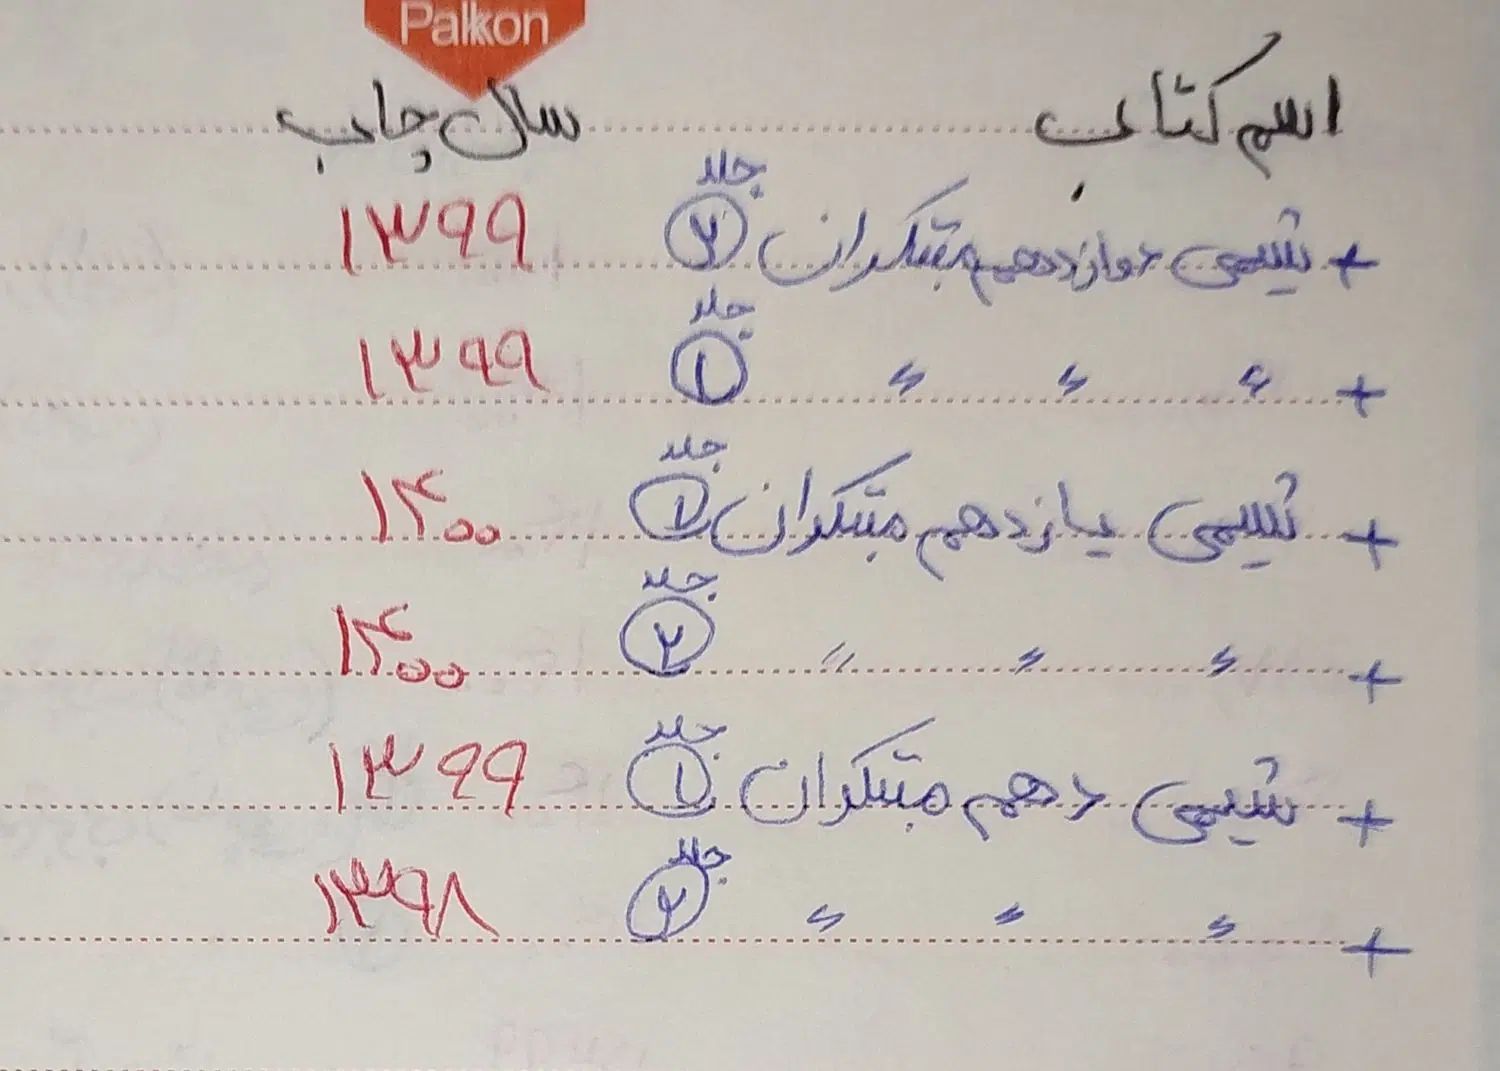 Palkon
اسم کتاب سال چاپ
+ شیمی دوازدهم مبتکران جلد ۲ ۱۳۹۹
+ 〃 〃 〃 جلد ۱ ۱۳۹۹
+ شیمی یازدهم مبتکران جلد ۱ ۱۴۰۰
+ 〃 〃 〃 جلد ۲ ۱۴۰۰
+ شیمی دهم مبتکران جلد ۱ ۱۳۹۹
+ 〃 〃 〃 جلد ۲ ۱۳۹۸